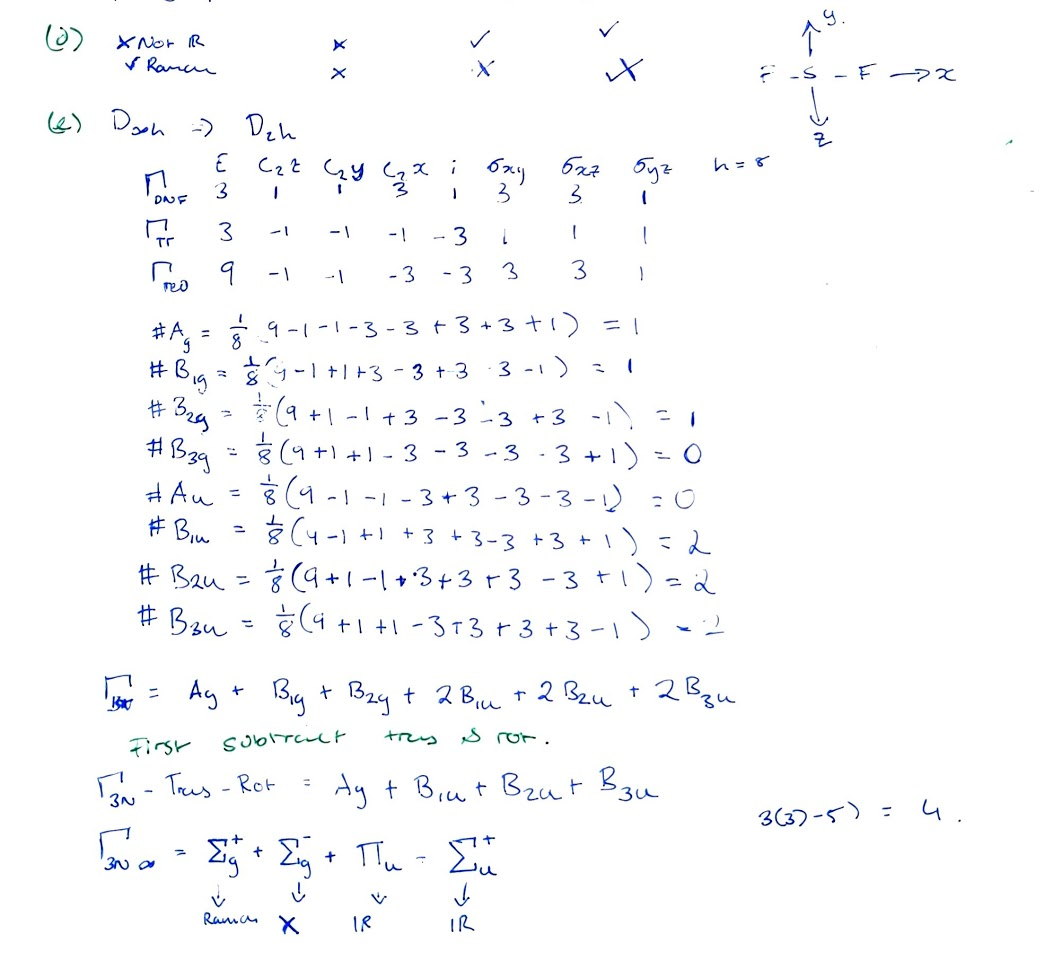 (d) × Not IR × ✓ ✓
✓ Raman × × ×
y.
F - S - F → x
z
(e) D∞h ⇒ D2h
E C2z C2y C2x i σxy σxz σyz h = 8
Γ DNF 3 1 1 3 1 3 3 1
Γ Tr 3 -1 -1 -1 -3 1 1 1
Γ red 9 -1 -1 -3 -3 3 3 1
#Ag = 1/8 9 -1 -1 -3 -3 +3 +3 +1) = 1
#B1g = 1/8(9 -1 +1 +3 -3 +3 3 -1) = 1
#B2g = 1/8(9 +1 -1 +3 -3 -3 +3 -1) = 1
#B3g = 1/8(9 +1 +1 -3 -3 -3 -3 +1) = 0
#Au = 1/8(9 -1 -1 -3 +3 -3 -3 -1) = 0
#B1u = 1/8(9 -1 +1 +3 +3 -3 +3 +1) = 2
#B2u = 1/8(9 +1 -1 +3 +3 +3 -3 +1) = 2
#B3u = 1/8(9 +1 +1 -3 +3 +3 +3 -1) = 2
Γ = Ag + B1g + B2g + 2B1u + 2B2u + 2B3u
First subtract trans & rot.
Γ3N - Trans - Rot = Ag + B1u + B2u + B3u
3(3)-5) = 4.
Γ3N ∞ = Σg+ + Σg- + Πu - Σu+
↓ ↓ ↓ ↓
Raman × IR IR